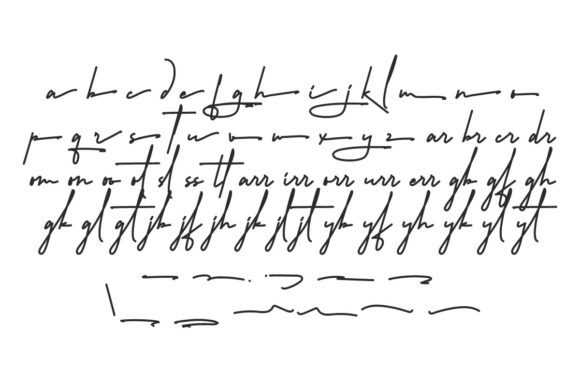 a b c d e f g h i j k l m n o
p q r s t u v w x y z ar br cr dr
om on oo ot sl ss tt arr irr orr urr err gb gf gh
gk gl gt jb jf jh jk jl jt yb yf yh yk yl yt